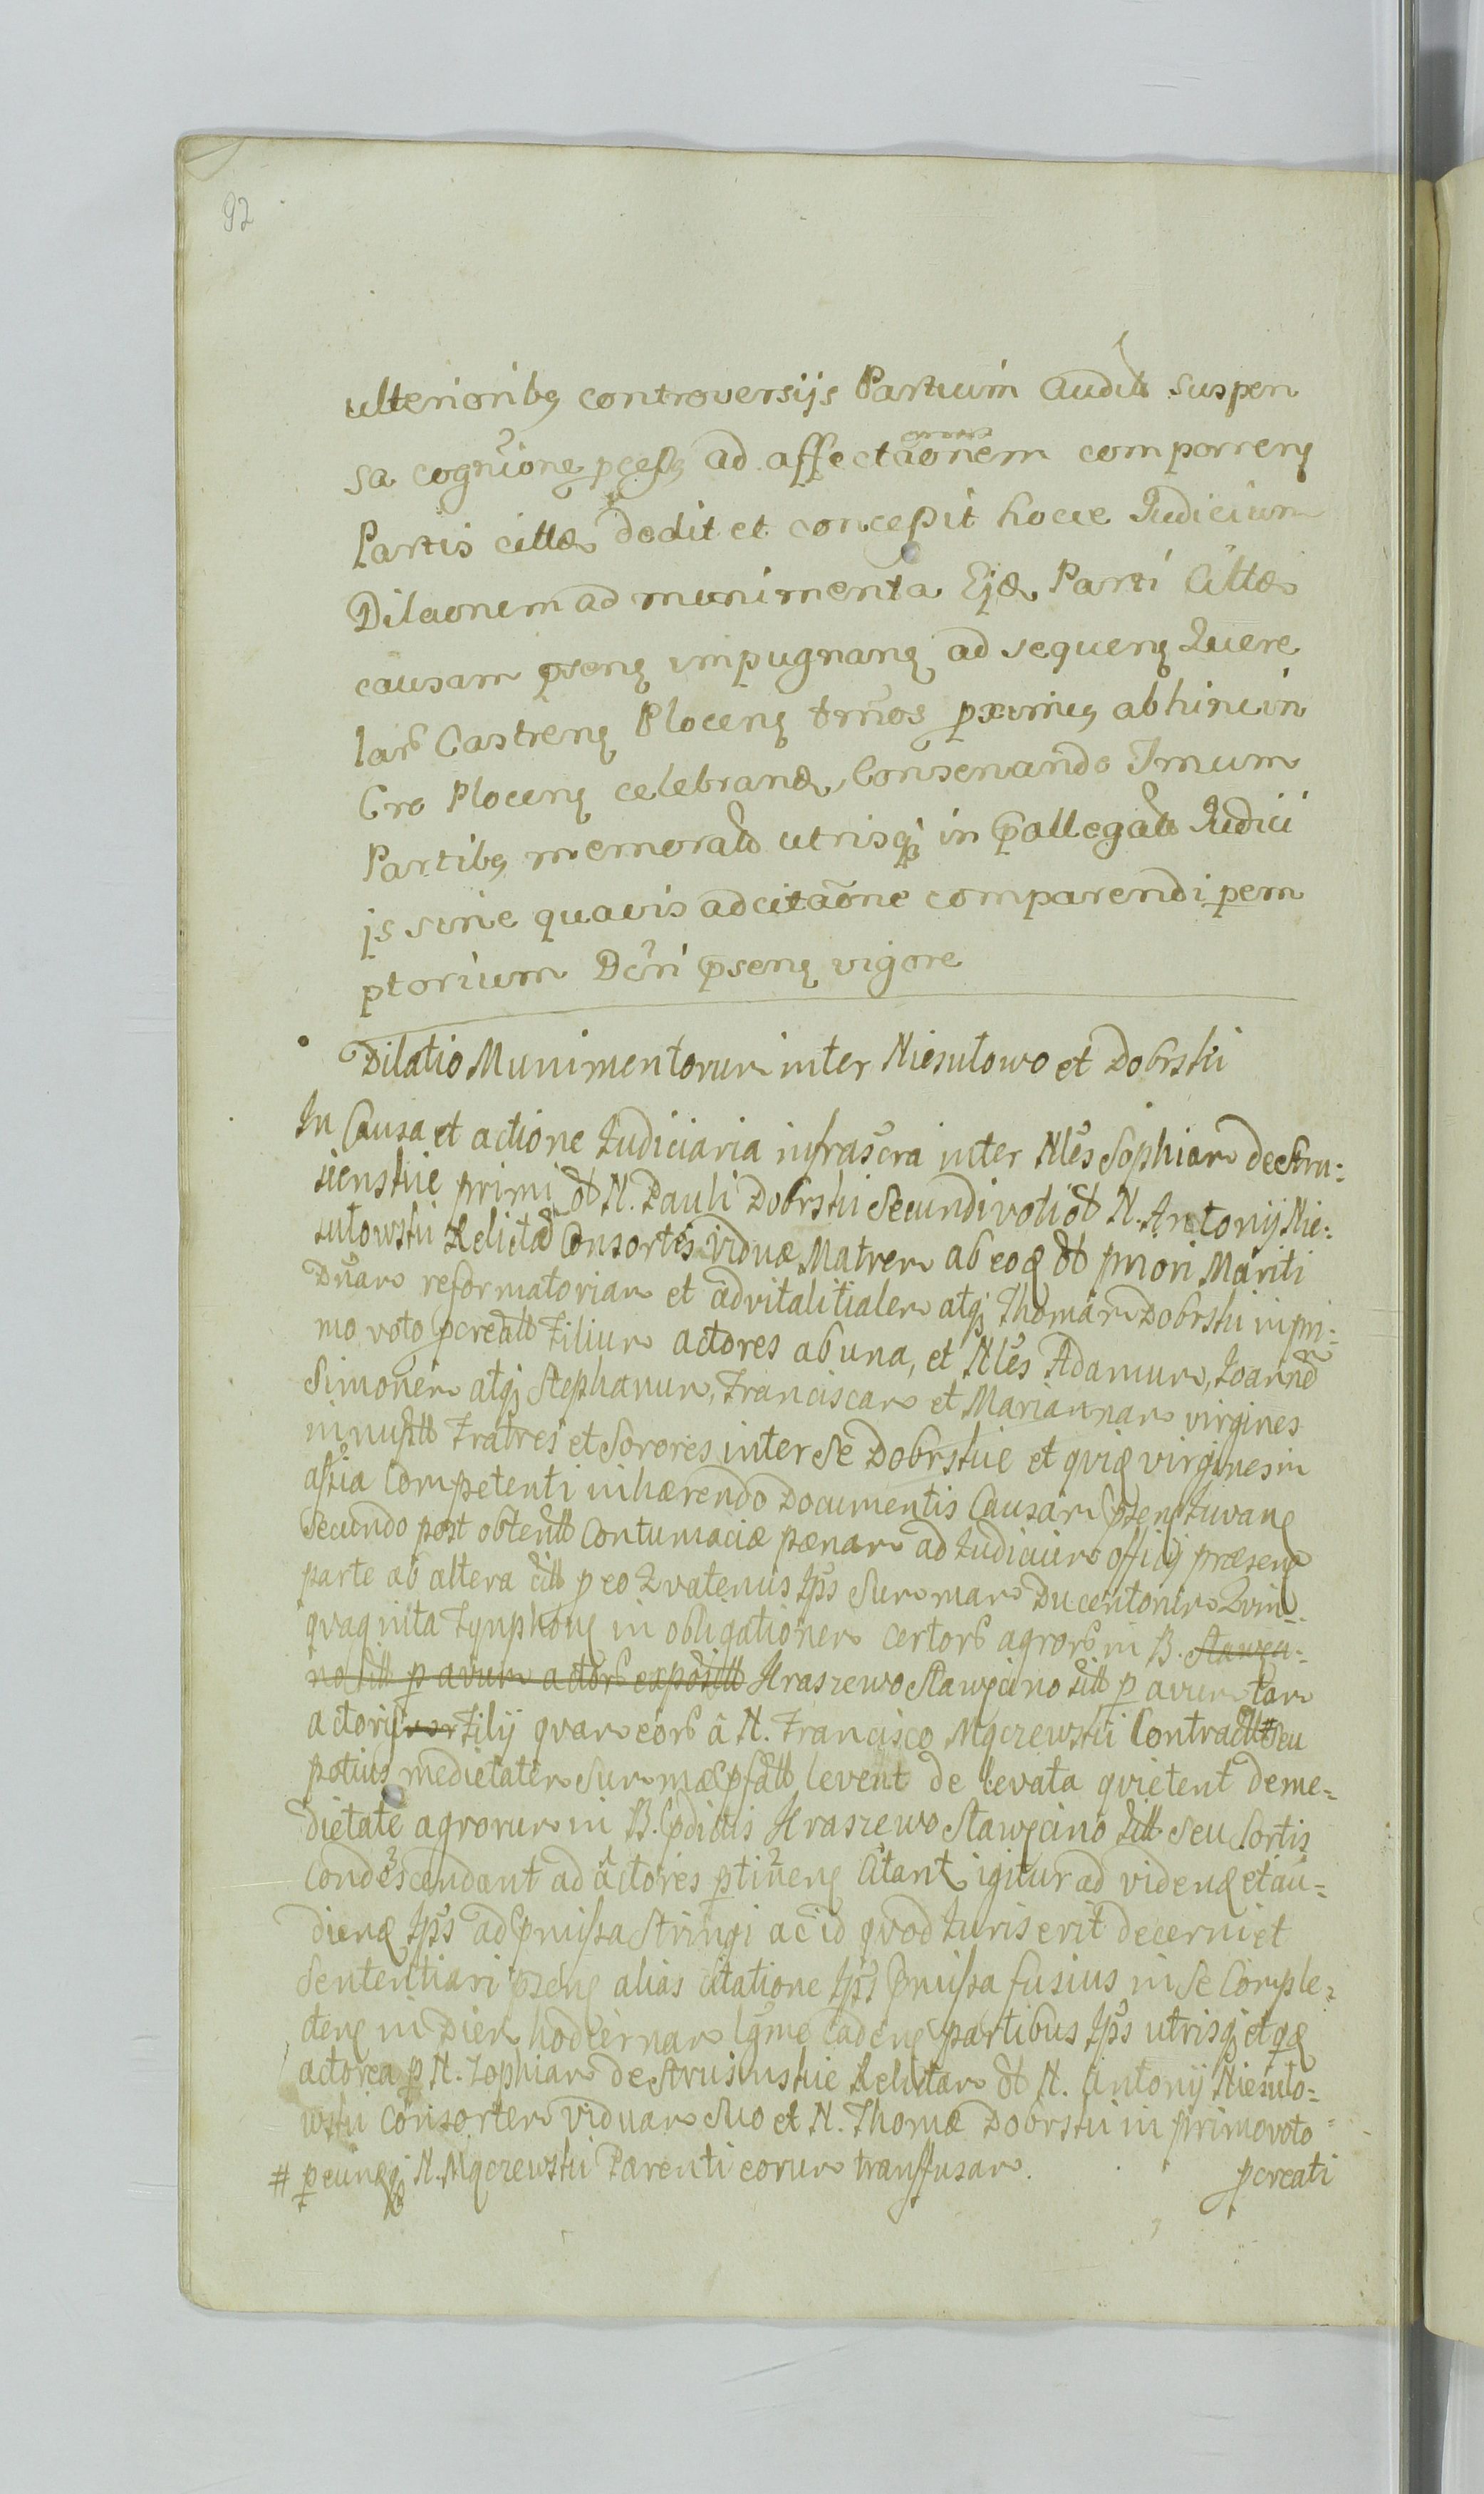 92
ulterioribq controversijs Partium auditt suspen
sa cognũione ad affectãonem comparenq
Partis cittæ dedit et concepit hocce Judicium
Dilaonem ad munimenta Ejd Parti Cittæ
causam psenq impugnanq ad sequenq Quere
larb Castrenq Plocenq trnos pximeq abhinc in
Cro Plocenq celebrand, Consenando Tmum
Partibq memoratt utrisq in pallegatt Judici
js sine quavis adcitãone comparendi pem
ptorium Dcri psenq vigore
Dilatio Munimentorum inter Niesułowo et Dobrski
In Causa et actione Judiciaria infrascra inter Nles Sophiam de Stru=
sienskie primi ot N. Pauli Dobrski Secundi voti ot N. Antonij Nie=
sułowski Relictã Consortes viduæ Matrem ab eoq ot priori Mariti
Dnam reformatoriam et advitalitialem atq Thomam Dobrski in pri=
mo voto pcreatt Filium actores ab una, et Nles Adamum, Joannẽ
Simonem atq Stephanum, Franciscam et Mariannam virgines
innuptt Fratres et Sorores inter Se Dobrskie et quiq virgines in
assia Competenti inhærendo Documentis Causam
Secundo post obtentt Contumaciæ pænam ad Judicium officij præsenq
parte ab altera citt p eo Quatenus Jpss Summam Ducentorum Quin=
quaginta Tynphonq in obligationem certorb agrorb in B. Stawęci=
no sitt p avum actorb expositt Kraszewo Stawęcino sitt p avum tam
actorij Filij quam eorb â N. Francisco Mączewski Contractt # Seu
potius medietatem Summæ pfatt levent de levata quietent de me=
dietate agrorum in B. pdictis Kraszewo Stawęcino sitt seu Sortis
Condescendant ad actores ptinenq Citant igitur ad videnq et au=
dienq Jpss ad pmissa Stringi ac id quod Juris erit decerni et
Sententiari psenq alias citatione Jpss pmissa fusius in Se Comple=
ctenq in Diem hodiernam lgme Cadenq partibus Jpss utrisq et qq
actorea p N. Zophiam de Strusinskie Relictam ot N. Antonij Niesuło=
wski Consortem viduam Suo et N. Thomæ Dobrski in primo voto
# pcunq N. Mączewski Parenti eorum transfusam. pcreati